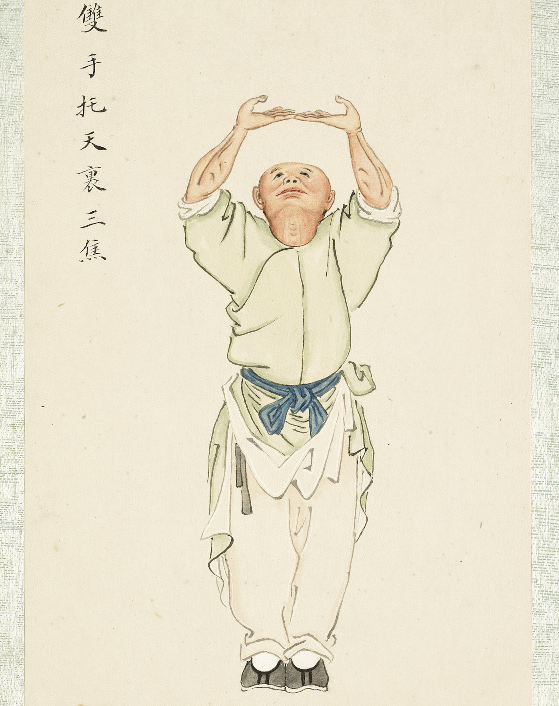 雙手托天裏三焦